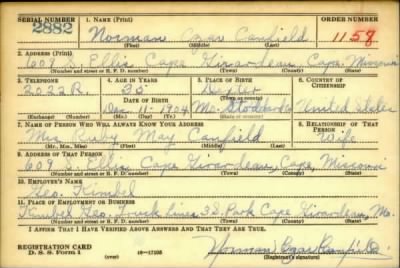 SERIAL NUMBER 1. NAME (Print) ORDER NUMBER
2882 Norman Ozar Canfield 1158
(First) (Middle) (Last)
2. ADDRESS (Print)
609 S. Ellis Cape Girardeau, Cape, Missouri
(Number and street or R. F. D. number) (Town) (County) (State)
3. TELEPHONE 4. AGE IN YEARS 5. PLACE OF BIRTH 6. COUNTRY OF CITIZENSHIP
2022R. 35 Dexter
DATE OF BIRTH
Dec. 11-1904 Mo. Stoddard Co United States
(Exchange) (Number) (Mo.) (Day) (Yr.) (Town or county) (State or country)
7. NAME OF PERSON WHO WILL ALWAYS KNOW YOUR ADDRESS 8. RELATIONSHIP OF THAT PERSON
Mrs. Ruby May Canfield Wife
(Mr., Mrs., Miss) (First) (Middle) (Last)
9. ADDRESS OF THAT PERSON
609 S. Ellis Cape Girardeau, Cape, Missouri
(Number and street or R. F. D. number) (Town) (County) (State)
10. EMPLOYER'S NAME
Geo. Kimbel
11. PLACE OF EMPLOYMENT OR BUSINESS
Kimbel Geo. Truck Lines 3 S. Park Cape Girardeau, Mo.
(Number and street or R. F. D. number) (Town) (County) (State)
I AFFIRM THAT I HAVE VERIFIED ABOVE ANSWERS AND THAT THEY ARE TRUE.
REGISTRATION CARD
D. S. S. Form 1 (over) 16—17105 Norman Ozar Canfield
(Registrant's signature)